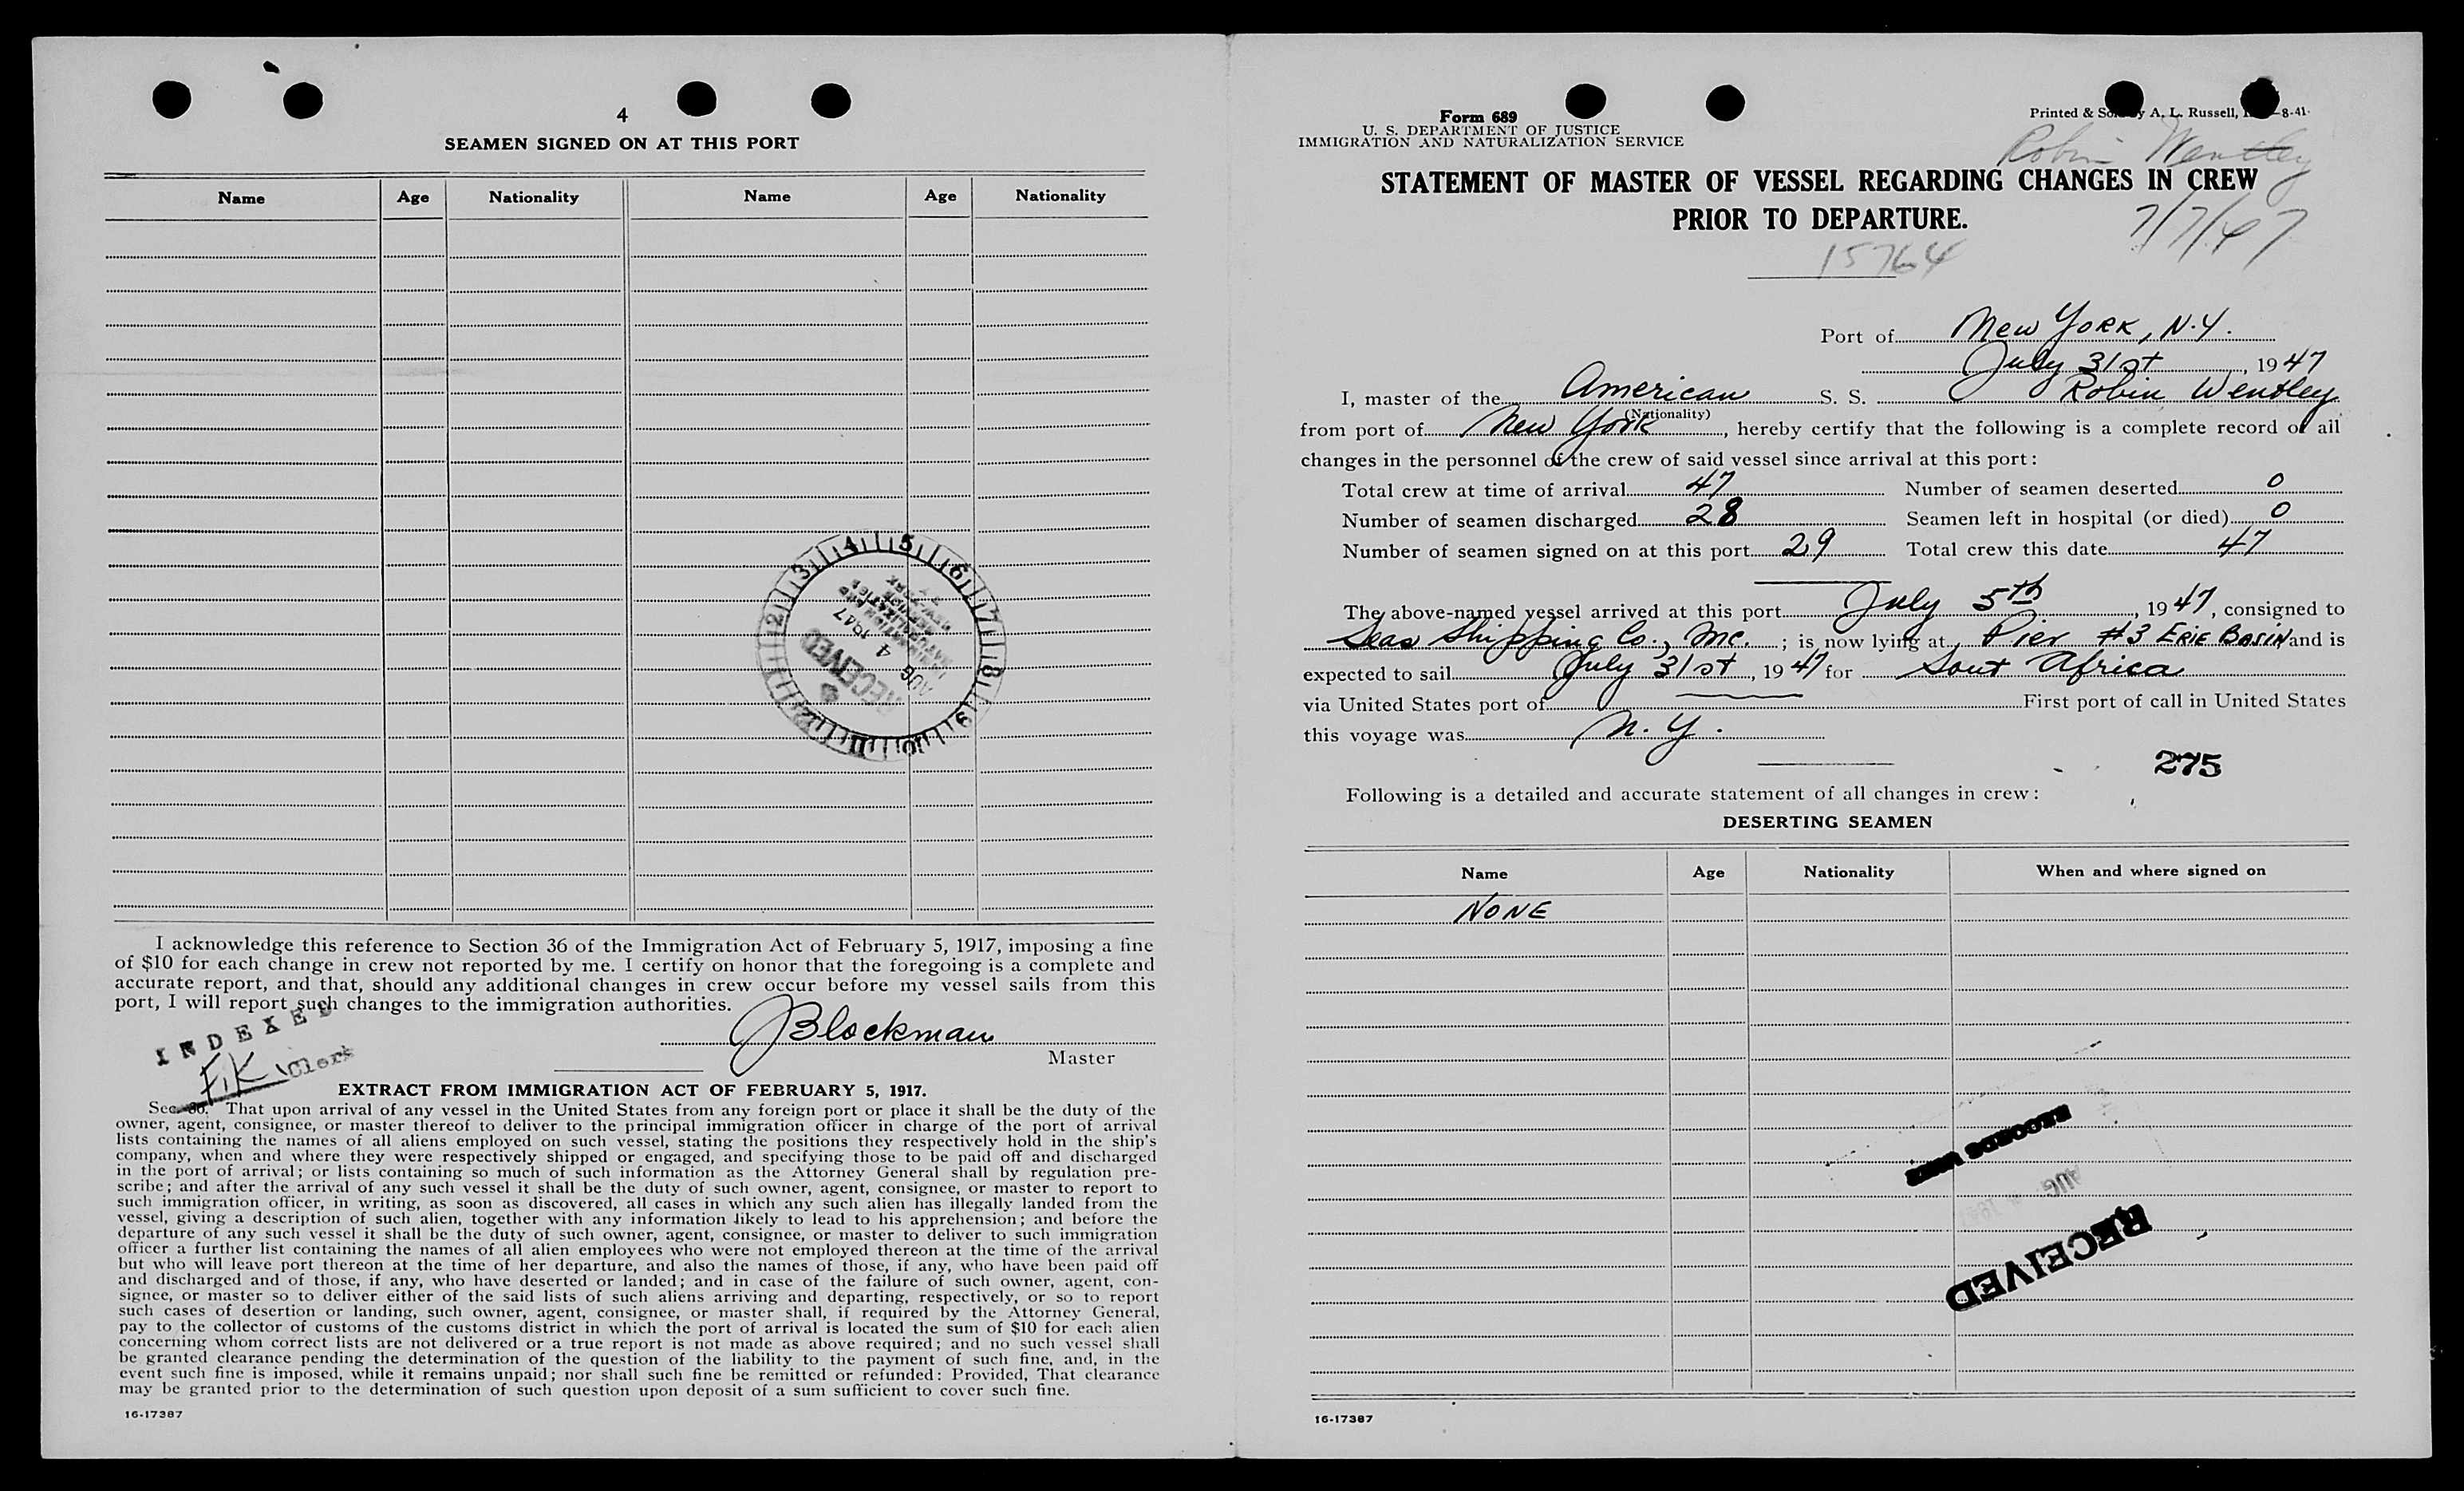 4
SEAMEN SIGNED ON AT THIS PORT
Name Age Nationality Name Age Nationality
3 4 5 6 7 8 9 10 11 12 2
RECEIVED
AUG 4 1947
I acknowledge this reference to Section 36 of the Immigration Act of February 5, 1917, imposing a fine
of $10 for each change in crew not reported by me. I certify on honor that the foregoing is a complete and
accurate report, and that, should any additional changes in crew occur before my vessel sails from this
port, I will report such changes to the immigration authorities.
INDEXED
Blackman
Master
F.K Clerk
EXTRACT FROM IMMIGRATION ACT OF FEBRUARY 5, 1917.
Sec. 36. That upon arrival of any vessel in the United States from any foreign port or place it shall be the duty of the
owner, agent, consignee, or master thereof to deliver to the principal immigration officer in charge of the port of arrival
lists containing the names of all aliens employed on such vessel, stating the positions they respectively hold in the ship's
company, when and where they were respectively shipped or engaged, and specifying those to be paid off and discharged
in the port of arrival; or lists containing so much of such information as the Attorney General shall by regulation pre-
scribe; and after the arrival of any such vessel it shall be the duty of such owner, agent, consignee, or master to report to
such immigration officer, in writing, as soon as discovered, all cases in which any such alien has illegally landed from the
vessel, giving a description of such alien, together with any information likely to lead to his apprehension; and before the
departure of any such vessel it shall be the duty of such owner, agent, consignee, or master to deliver to such immigration
officer a further list containing the names of all alien employees who were not employed thereon at the time of the arrival
but who will leave port thereon at the time of her departure, and also the names of those, if any, who have been paid off
and discharged and of those, if any, who have deserted or landed; and in case of the failure of such owner, agent, con-
signee, or master so to deliver either of the said lists of such aliens arriving and departing, respectively, or so to report
such cases of desertion or landing, such owner, agent, consignee, or master shall, if required by the Attorney General,
pay to the collector of customs of the customs district in which the port of arrival is located the sum of $10 for each alien
concerning whom correct lists are not delivered or a true report is not made as above required; and no such vessel shall
be granted clearance pending the determination of the question of the liability to the payment of such fine, and, in the
event such fine is imposed, while it remains unpaid; nor shall such fine be remitted or refunded: Provided, That clearance
may be granted prior to the determination of such question upon deposit of a sum sufficient to cover such fine.
16-17387
Form 689
U. S. DEPARTMENT OF JUSTICE
IMMIGRATION AND NATURALIZATION SERVICE
Printed & Sold by A. L. Russell, 8-41
Robin Wentley
STATEMENT OF MASTER OF VESSEL REGARDING CHANGES IN CREW
PRIOR TO DEPARTURE.
7/7/47
15764
Port of New York, N.Y.
July 31st, 1947
I, master of the American S. S. Robin Wentley
(Nationality)
from port of New York, hereby certify that the following is a complete record of all
changes in the personnel of the crew of said vessel since arrival at this port:
Total crew at time of arrival 47 Number of seamen deserted 0
Number of seamen discharged 28 Seamen left in hospital (or died) 0
Number of seamen signed on at this port 29 Total crew this date 47
The above-named vessel arrived at this port July 5th, 1947, consigned to
Seas Shipping Co., Inc.; is now lying at Pier #3 ERIE BASIN and is
expected to sail July 31st, 1947 for Sout Africa
via United States port of First port of call in United States
this voyage was N.Y.
275
Following is a detailed and accurate statement of all changes in crew:
DESERTING SEAMEN
Name Age Nationality When and where signed on
NONE
RECORDS
AUG
RECEIVED
16-17387